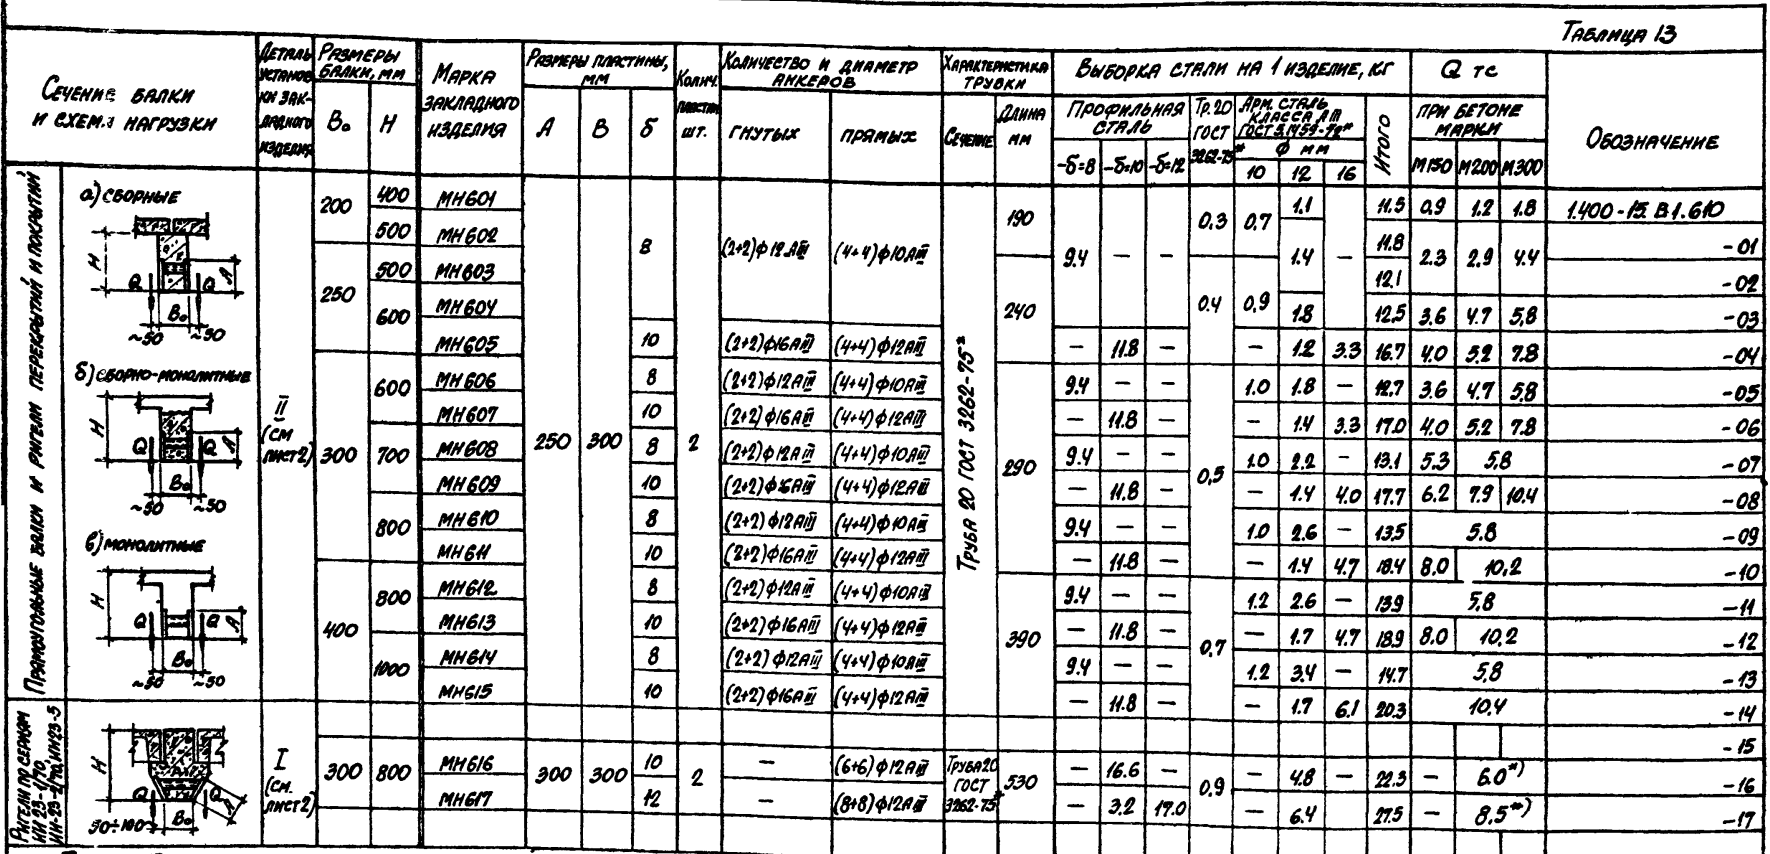 Таблица 13
Сечение балки и схема нагрузки
Деталь установки закладного изделия
Размеры балки, мм
В₀ Н
Марка закладного изделия
Размеры пластины, мм
А В δ
Колич. пластин шт.
Количество и диаметр анкеров
гнутых прямых
Характеристика трубки
Сечение Длина мм
Выборка стали на 1 изделие, кг
Профильная сталь
-δ=8 -δ=10 -δ=12
Тр.20 ГОСТ 3262-75*
Арм. сталь класса А III ГОСТ 5.1459-72*
Ф мм
10 12 16
Итого
Q тс
при бетоне марки
М150 М200 М300
Обозначение
Прямоугольные балки и ригели перекрытий и покрытий
а) сборные
Н Q Q А
В₀
~50 ~50
б) сборно-монолитные
Н Q Q А
В₀
~50 ~50
в) монолитные
Н Q Q А
В₀
~50 ~50
II (см лист 2)
250 300 2
Труба 20 ГОСТ 3262-75*
200 400 МН601 8 (2+2)ф12АIII (4+4)ф10АIII 190 9.4 — — 0.3 0.7 1.1 — 11.5 0.9 1.2 1.8 1.400-15.В1.610
500 МН602 1.4 11.8 2.3 2.9 4.4 -01
250 500 МН603 240 0.4 0.9 12.1 -02
600 МН604 1.8 12.5 3.6 4.7 5,8 -03
МН605 10 (2+2)ф16АIII (4+4)ф12АIII — 11.8 — — 1.2 3.3 16.7 4.0 5.2 7.8 -04
300 600 МН606 8 (2+2)ф12АIII (4+4)ф10АIII 290 9.4 — — 0,5 1.0 1.8 — 12,7 3.6 4.7 5.8 -05
МН607 10 (2+2)ф16АIII (4+4)ф12АIII — 11.8 — — 1.4 3.3 17.0 4.0 5.2 7.8 -06
700 МН608 8 (2+2)ф12АIII (4+4)ф10АIII 9.4 — — 1.0 2.2 — 13.1 5.3 5.8 -07
МН609 10 (2+2)ф16АIII (4+4)ф12АIII — 11.8 — — 1.4 4.0 17.7 6.2 7.9 10.4 -08
800 МН610 8 (2+2)ф12АIII (4+4)ф10АIII 9.4 — — 1.0 2.6 — 13.5 5.8 -09
МН611 10 (2+2)ф16АIII (4+4)ф12АIII — 11.8 — — 1.4 4.7 18.4 8.0 10,2 -10
400 800 МН612 8 (2+2)ф12АIII (4+4)ф10АIII 390 9.4 — — 0,7 1.2 2.6 — 13.9 5,8 -11
МН613 10 (2+2)ф16АIII (4+4)ф12АIII — 11.8 — — 1.7 4.7 18.9 8.0 10,2 -12
1000 МН614 8 (2+2)ф12АIII (4+4)ф10АIII 9.4 — — 1.2 3.4 — 14.7 5.8 -13
МН615 10 (2+2)ф16АIII (4+4)ф12АIII — 11.8 — — 1.7 6.1 20.3 10.4 -14
-15
Ригели по сериям ИИ 23-1/70, ИИ-23-2/70, ИИ23-5
Н Q Q А
В₀
50÷100
I (см. лист 2)
300 800 МН616 300 300 10 2 — (6+6)ф12АIII Труба 20 ГОСТ 3262-75* 530 — 16.6 — 0.9 — 4.8 — 22.3 — 6.0*) -16
МН617 12 — (8+8)ф12АIII — 3.2 17.0 — 6.4 27.5 — 8.5*) -17